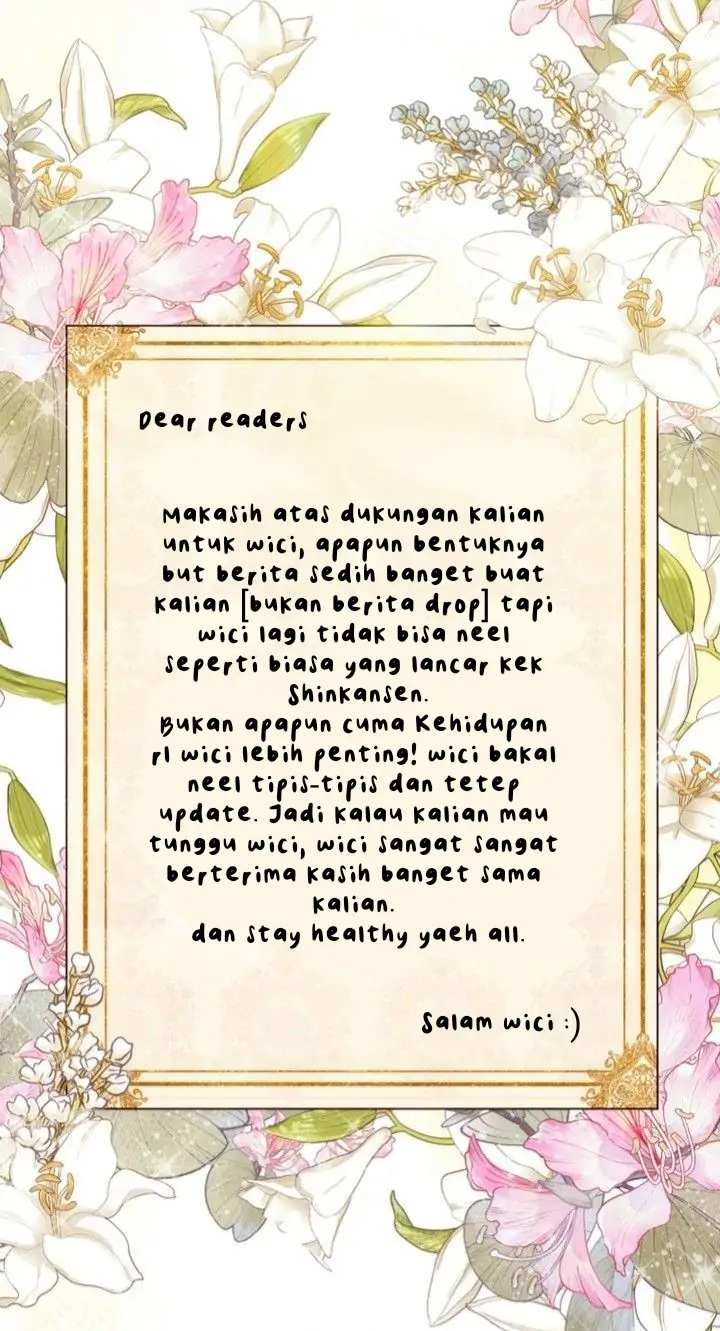 Dear readers
Makasih atas dukungan kalian
untuk wici, apapun bentuknya
but berita sedih banget buat
kalian [bukan berita drop] tapi
wici lagi tidak bisa neel
seperti biasa yang lancar kek
Shinkansen.
Bukan apapun cuma Kehidupan
rl wici lebih penting! wici bakal
neel tipis-tipis dan tetep
update. Jadi kalau kalian mau
tunggu wici, wici sangat sangat
berterima kasih banget sama
kalian.
dan stay healthy yaeh all.
Salam wici :)